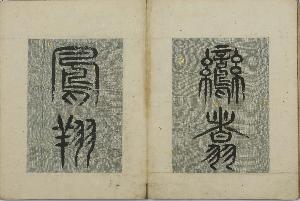 鸞翥
鳳翔